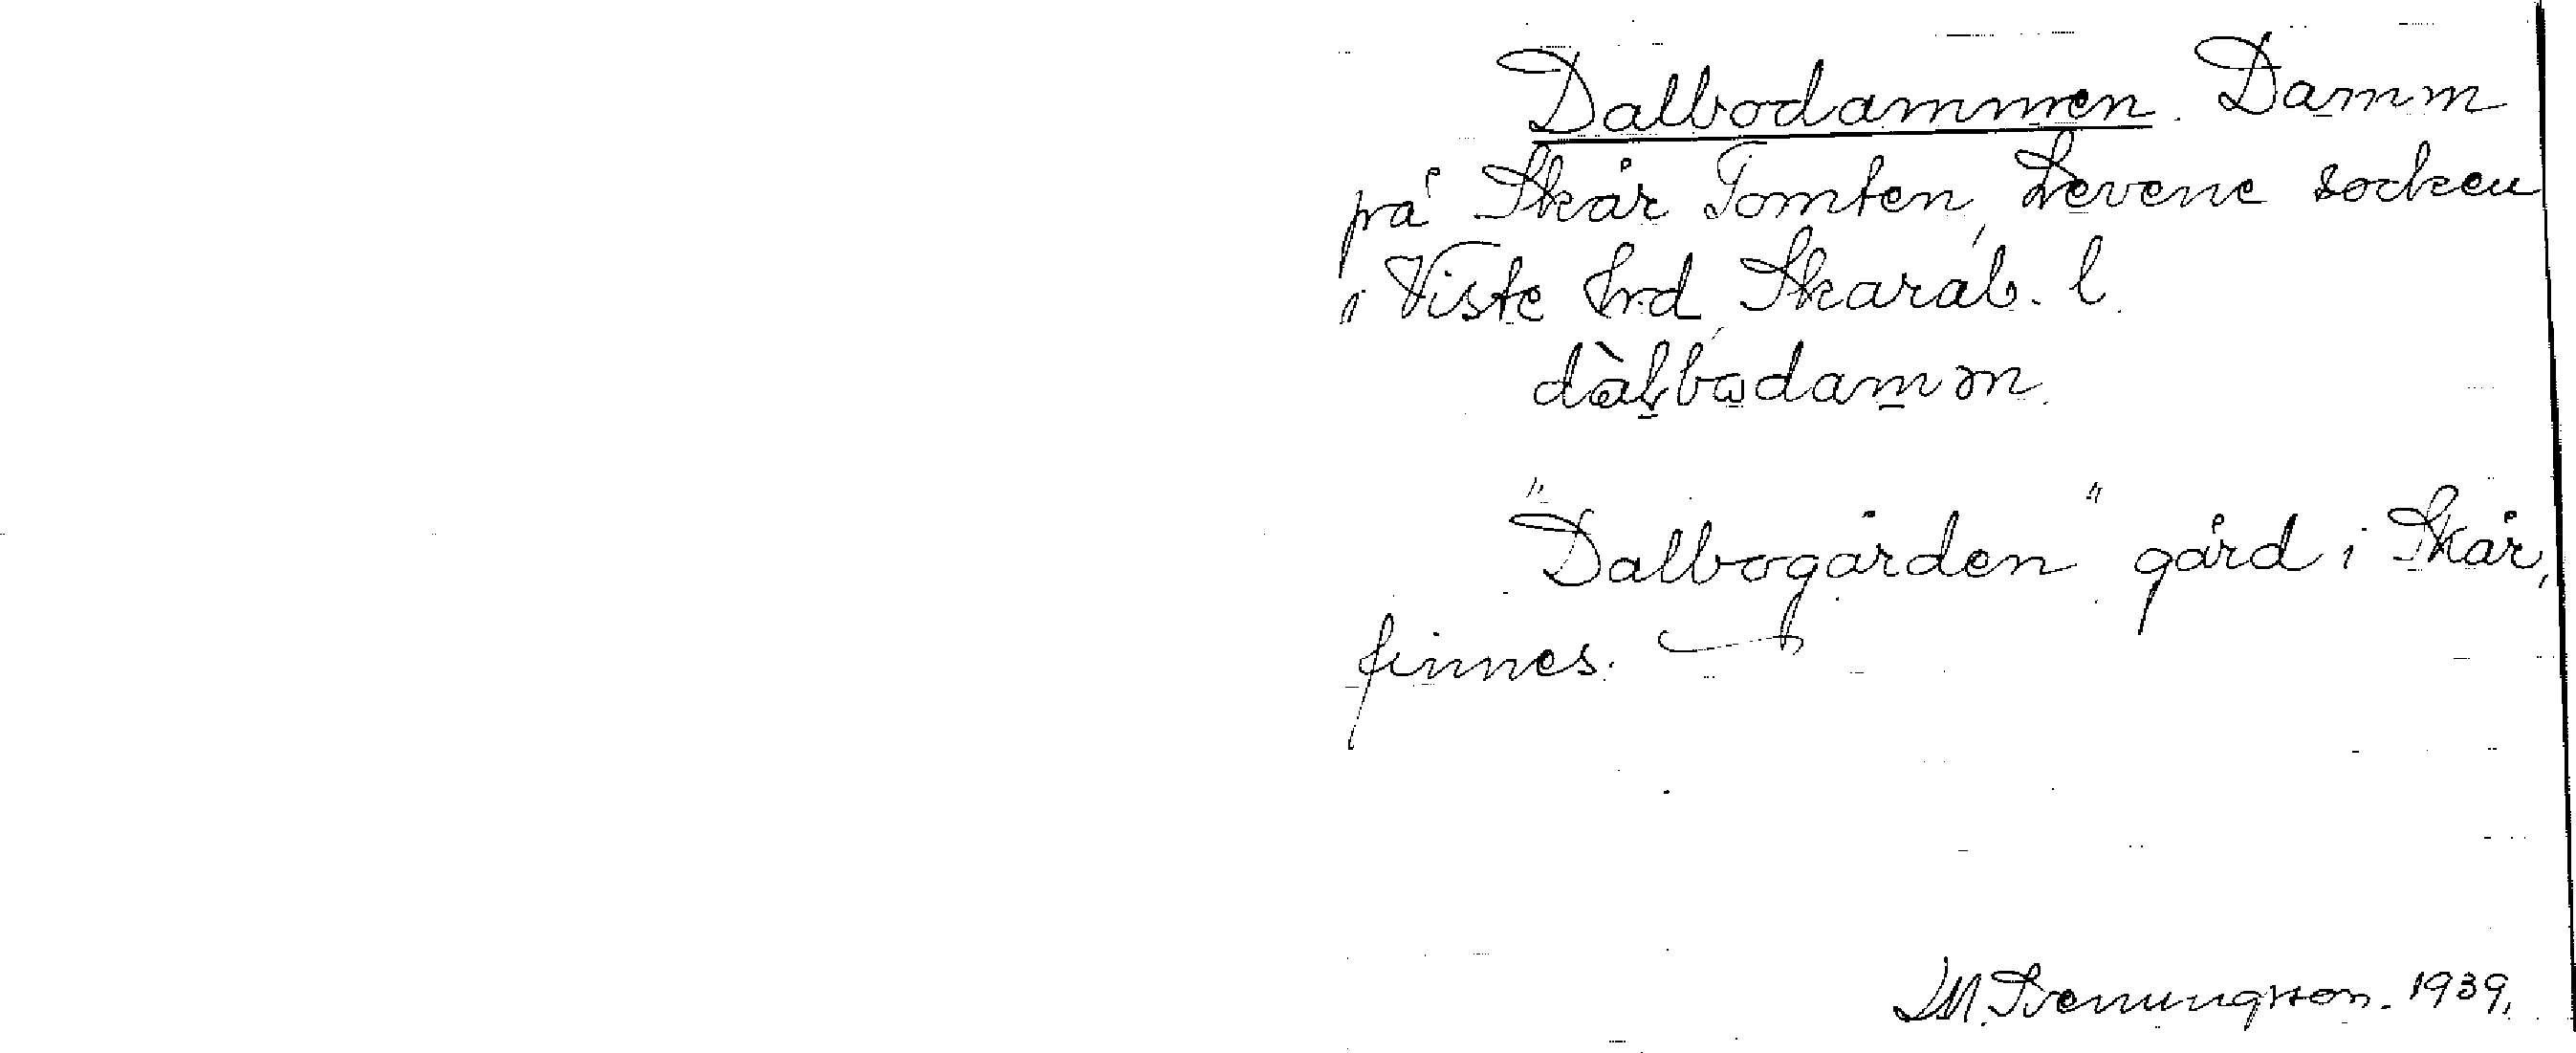 Dalbodammen. Damm
på Skår Tomten, Levene socken
i Viste hrd, Skarab. l.
dàḷbωdamən.
"Dalbogården" gård i Skår,
finnes.
M. Svenungsson. 1939.